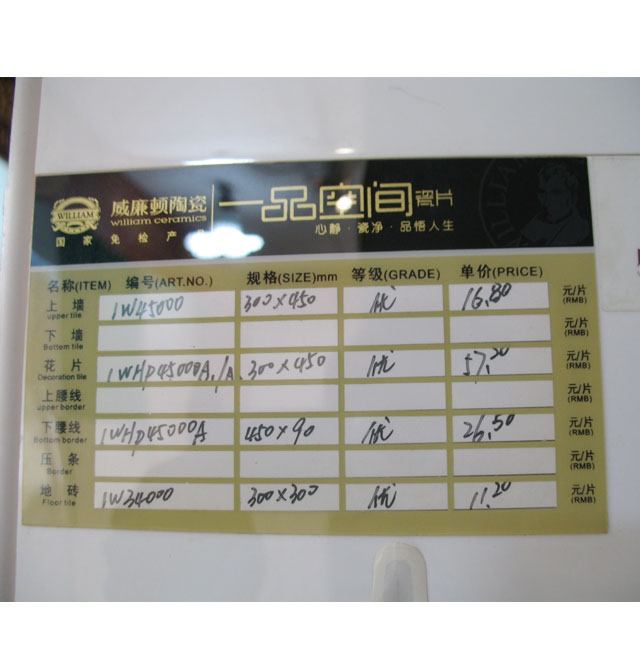 WILLIAM 威廉顿陶瓷 william ceramics 一品空间 瓷片
国家免检产品 心静·瓷净·品悟人生
名称(ITEM) 编号(ART.NO.) 规格(SIZE)mm 等级(GRADE) 单价(PRICE)
上墙 upper tile 1W45000 300×450 优 16.80 元/片 (RMB)
下墙 Bottom tile 元/片 (RMB)
花片 Decoration tile 1WHP45000A1/A 300×450 优 57.20 元/片 (RMB)
上腰线 upper border 元/片 (RMB)
下腰线 Bottom border 1WHP45000A 450×90 优 26.50 元/片 (RMB)
压条 Border 元/片 (RMB)
地砖 Floor tile 1W34000 300×300 优 11.20 元/片 (RMB)